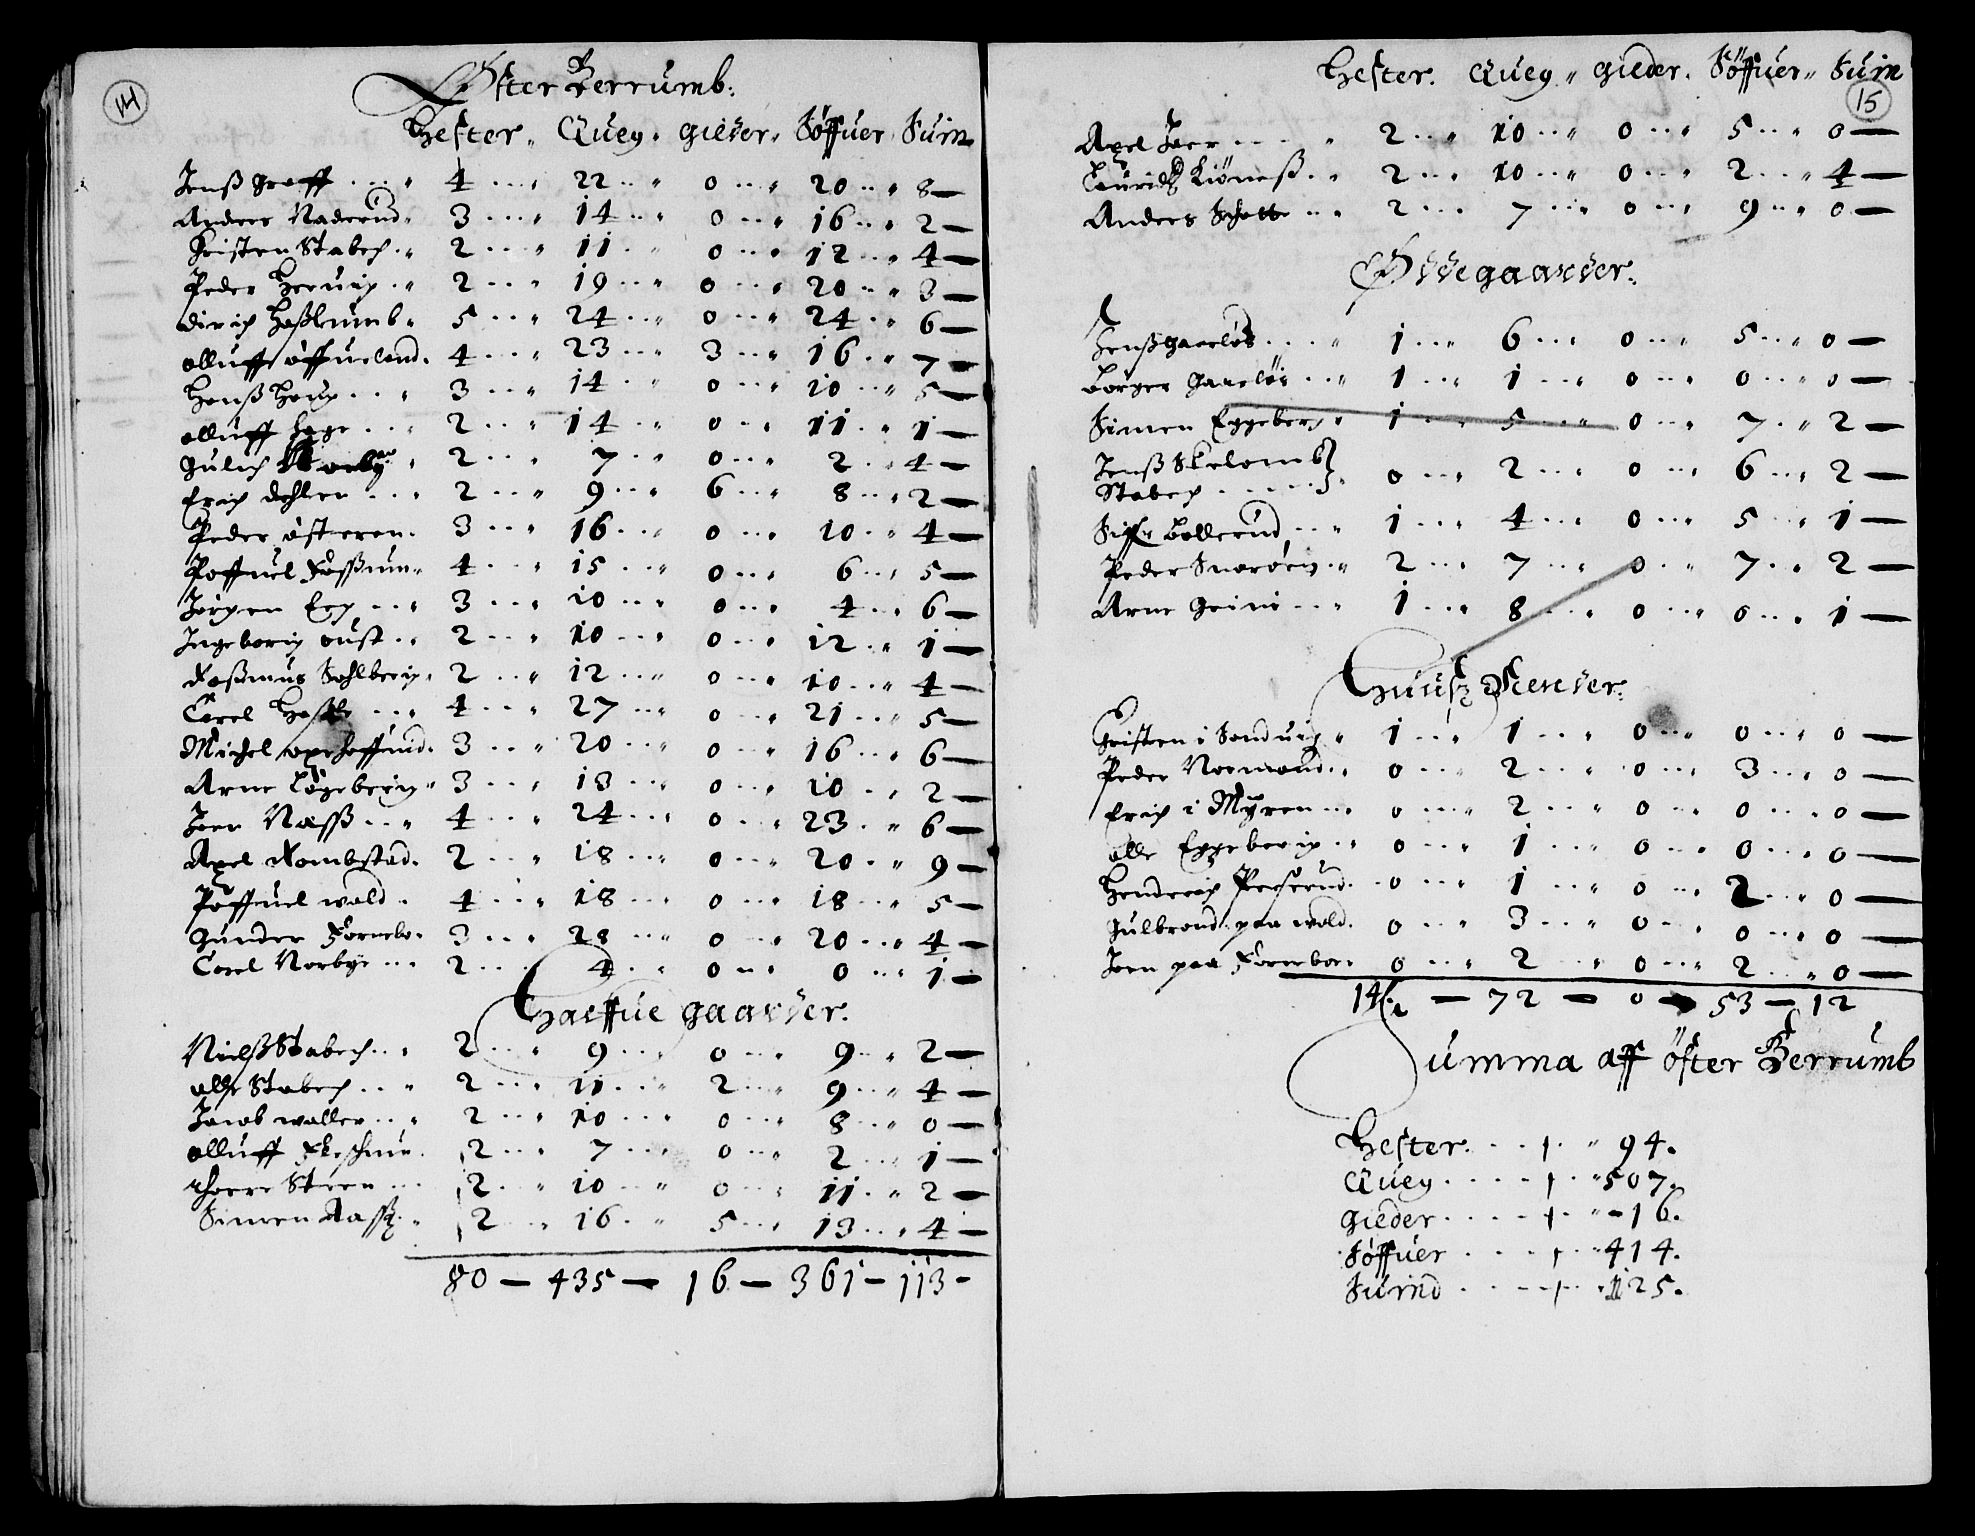 14
Øster Berrumb.
Hester. Queg. gieder. Søffuer Suin
Jenß Graff . . . 4 . . . 22 . . 0 . . . 20 . . 8
Anders Naderud 3 . . . 14 . . 0 . . . 16 . . 2
Cristen Stabech . . 2 . . . 11 . . 0 . . . 12 . . 4
Peder Heruig . . 2 . . . 19 . . 0 . . . 20 . . 3
dirich Haßlumb 5 . . . 24 . . 0 . . . 24 . . 6
olluff øffueland. 4 . . . 23 . . 3 . . . 16 . . 7
Hanß Houg . . . 3 . . . 14 . . 0 . . . 10 . . 5
olluff Hage . . . 2 . . . 14 . . 0 . . . 11 . . 1
Gulich Norby . 2 . . . 7 . . 0 . . . 2 . . 4
Erich dehlen . . . 2 . . . 9 . . 6 . . . 8 . . 2
Peder østeren . 3 . . . 16 . . 0 . . . 10 . . 4
Poffuel Foßßum . 4 . . . 15 . . 0 . . . 6 . . 5
Jørgen Eeg . . . 3 . . . 10 . . 0 . . . 4 . . 6
Ingeborig oust . . 2 . . . 10 . . 0 . . . 12 . . 1
Raßmus Sohlberig . 2 . . . 12 . . 0 . . . 10 . . 4
Carel Haßle . . . 4 . . . 27 . . 0 . . . 21 . . 5
Michel opehoffuid . 3 . . . 20 . . 0 . . . 16 . . 6
Arne Løgeberig . 3 . . . 13 . . 0 . . . 10 . . 2
Joen Næßß . . . 4 . . . 24 . . 0 . . . 23 . . 6
Axel Rombstad . 2 . . . 18 . . 0 . . . 20 . . 9
Poffuel wold . 4 . . . 18 . . 0 . . . 18 . . 5
Gunder Fornebo . 3 . . . 28 . . 0 . . . 20 . . 4
Carel Norbye . . . 2 . . . 4 . . 0 . . . 0 . . 1
Halffue gaarder.
Nielß Stabech . . . 2 . . . 9 . . 0 . . . 9 . . 2
olle Stabech . . . 2 . . . 11 . . 2 . . . 9 . . 4
Jacob woller . . . 2 . . . 10 . . 0 . . . 8 . . 0
olluff . 2 . . . 7 . . 0 . . . 2 . . 1
Steen . . . 2 . . . 10 . . 0 . . . 11 . . 2
Simen . 2 . . . 16 . . 5 . . . 13 . . 4
80 — 435 — 16 — 361 — 113 -
Hester. Queg. gieder. Søffuer. Suin
15
Axel Jær . . . . 2 . . 10 . . 0 . . 5 . . 0
Lauridz Kiøneß . . 2 . . 10 . . 0 . . 2 . . 4
Anders Schotte . . 2 . . 7 . . 0 . . 9 . . 0
Ødegaarder.
Jenß gaarløs . . . 1 . . 6 . . 0 . . 5 . . 0
Børger Gaarløs . . 1 . . 1 . . 0 . . 0 . . 0
Simen Eggeberg . 1 . . 5 . . 0 . . 7 . . 2
Jenß Skelomb
Stabech . . . . . 0 . . 2 . . 0 . . 6 . . 2
Siffr Bollerud . . . 1 . . 4 . . 0 . . 5 . . 1
Peder Snarøen . . 2 . . 7 . . 0 . . 7 . . 2
Arne Grini . . . 1 . . 8 . . 0 . . 0 . . 1
Huusz Mender.
Cristen i Sanduig . 1 . . 1 . . 0 . . 0 . . 0
Peder Normand . . 0 . . 2 . . 0 . . 3 . . 0
Erich i Myren . . . 0 . . 2 . . 0 . . 0 . . 0
olle Eggeberig . . 0 . . 1 . . 0 . . 0 . . 0
Henderich . 0 . . 1 . . 0 . . 2 . . 0
Gulbrand paa wold . 0 . . 3 . . 0 . . 0 . . 0
Joen paa Fornebo . 0 . . 2 . . 0 . . 2 . . 0
14 — 72 — 0 — 53 — 12
Summa aff øster Berrumb
Hester . . . . 94.
Queg . . . . 507.
gieder . . . . - 16.
Søffuer . . . . 414.
Suind . . . . 125.